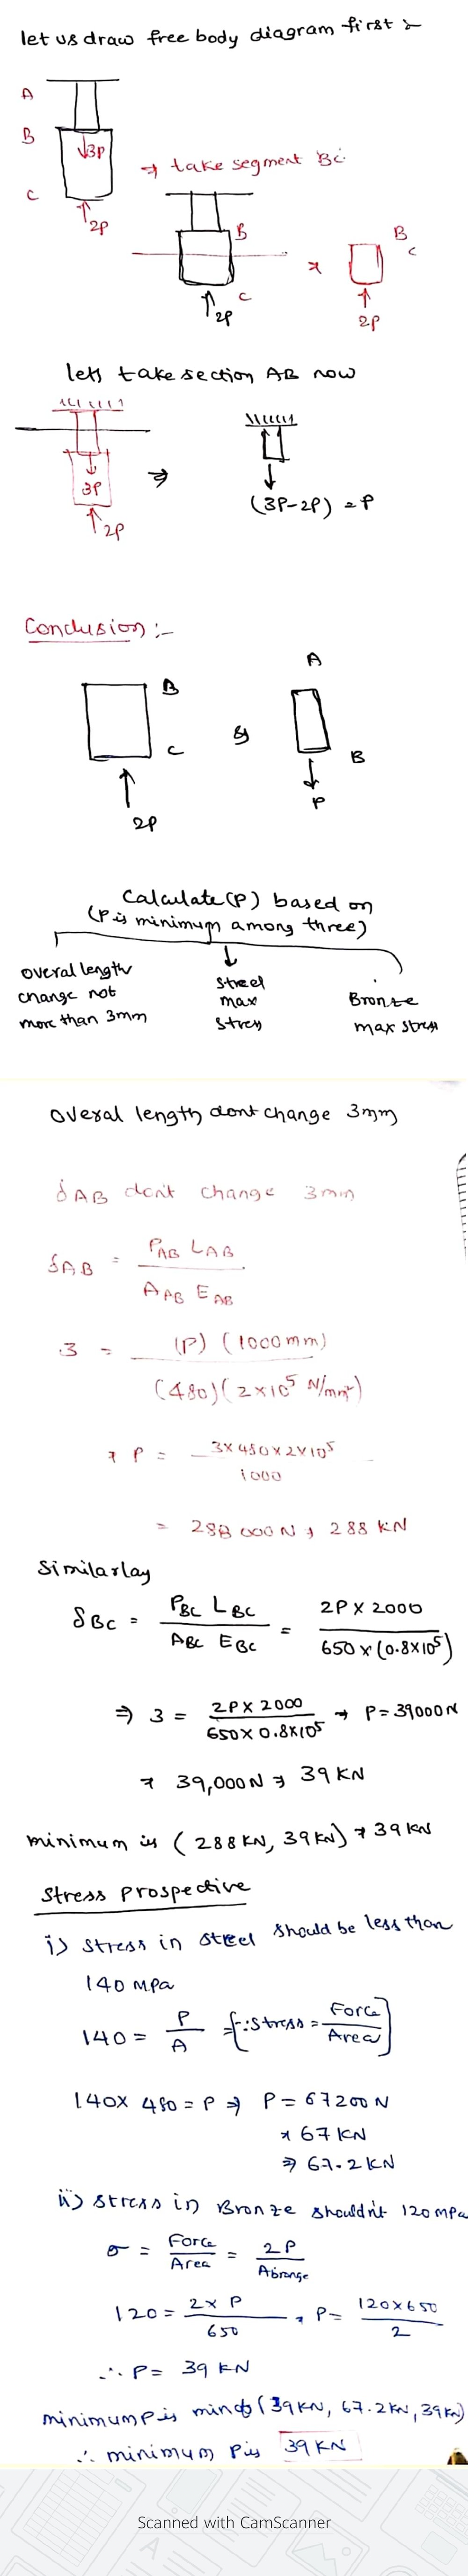 let us draw free body diagram first :-
A
B
↓3P
→ take segment BC.
C
↑2P
B
C
B
C
↑2P
↑
2P
lets take section AB now
3P
↑2P
⇒
↓
(3P-2P) = P
Conclusion :-
A
B
&
C
B
↑
2P
↓
P
Calculate (P) based on
(P is minimum among three)
overal length
change not
more than 3mm
Streel
max
stress
Bronze
max stress
Overal length dont change 3mm
δAB don't change 3mm
δAB = PAB LAB / AAB EAB
3 = (P) (1000mm) / (480)(2×10⁵ N/mm²)
⇒ P = 3×480×2×10⁵ / 1000
= 288 000 N ⇒ 288 KN
Similarlay
δBC = PBC LBC / ABC EBC = 2P × 2000 / 650 × (0.8×10⁵)
⇒ 3 = 2P × 2000 / 650 × 0.8×10⁵ → P = 39000N
⇒ 39,000N ⇒ 39 KN
minimum is (288 KN, 39 KN) ⇒ 39 KN
Stress Prospective
i) stress in steel should be less than
140 MPa
140 = P / A {∵ Stress = Force / Area}
140 × 480 = P ⇒ P = 67200 N
⇒ 67 KN
⇒ 67.2 KN
ii) stress in Bronze shouldn't 120 MPa
σ = Force / Area = 2P / Abronge
120 = 2 × P / 650 , P = 120×650 / 2
∴ P = 39 KN
minimum P is min of (39 KN, 67.2 KN, 39 KN)
∴ minimum P is 39 KN
Scanned with CamScanner